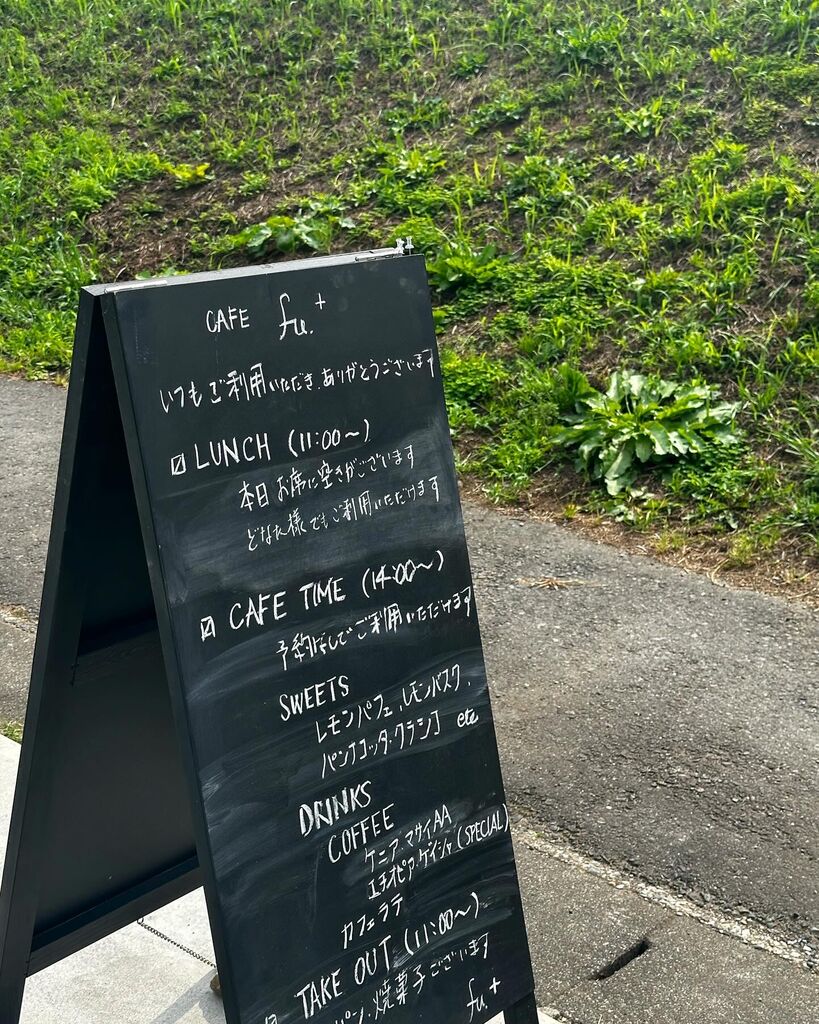 CAFE fu.+
いつもご利用いただき、ありがとうございます
☑ LUNCH (11:00〜)
本日お席に空きがございます
どなた様でもご利用いただけます
☑ CAFE TIME (14:00〜)
予約なしでご利用いただけます
SWEETS
レモンパフェ、レモンバスク、
パンナコッタ・クラシコ etc
DRINKS
COFFEE
ケニア・マサイAA
エチオピア・ゲイシャ(SPECIAL)
カフェラテ
TAKE OUT (11:00〜)
パン・焼菓子ございます
fu.+